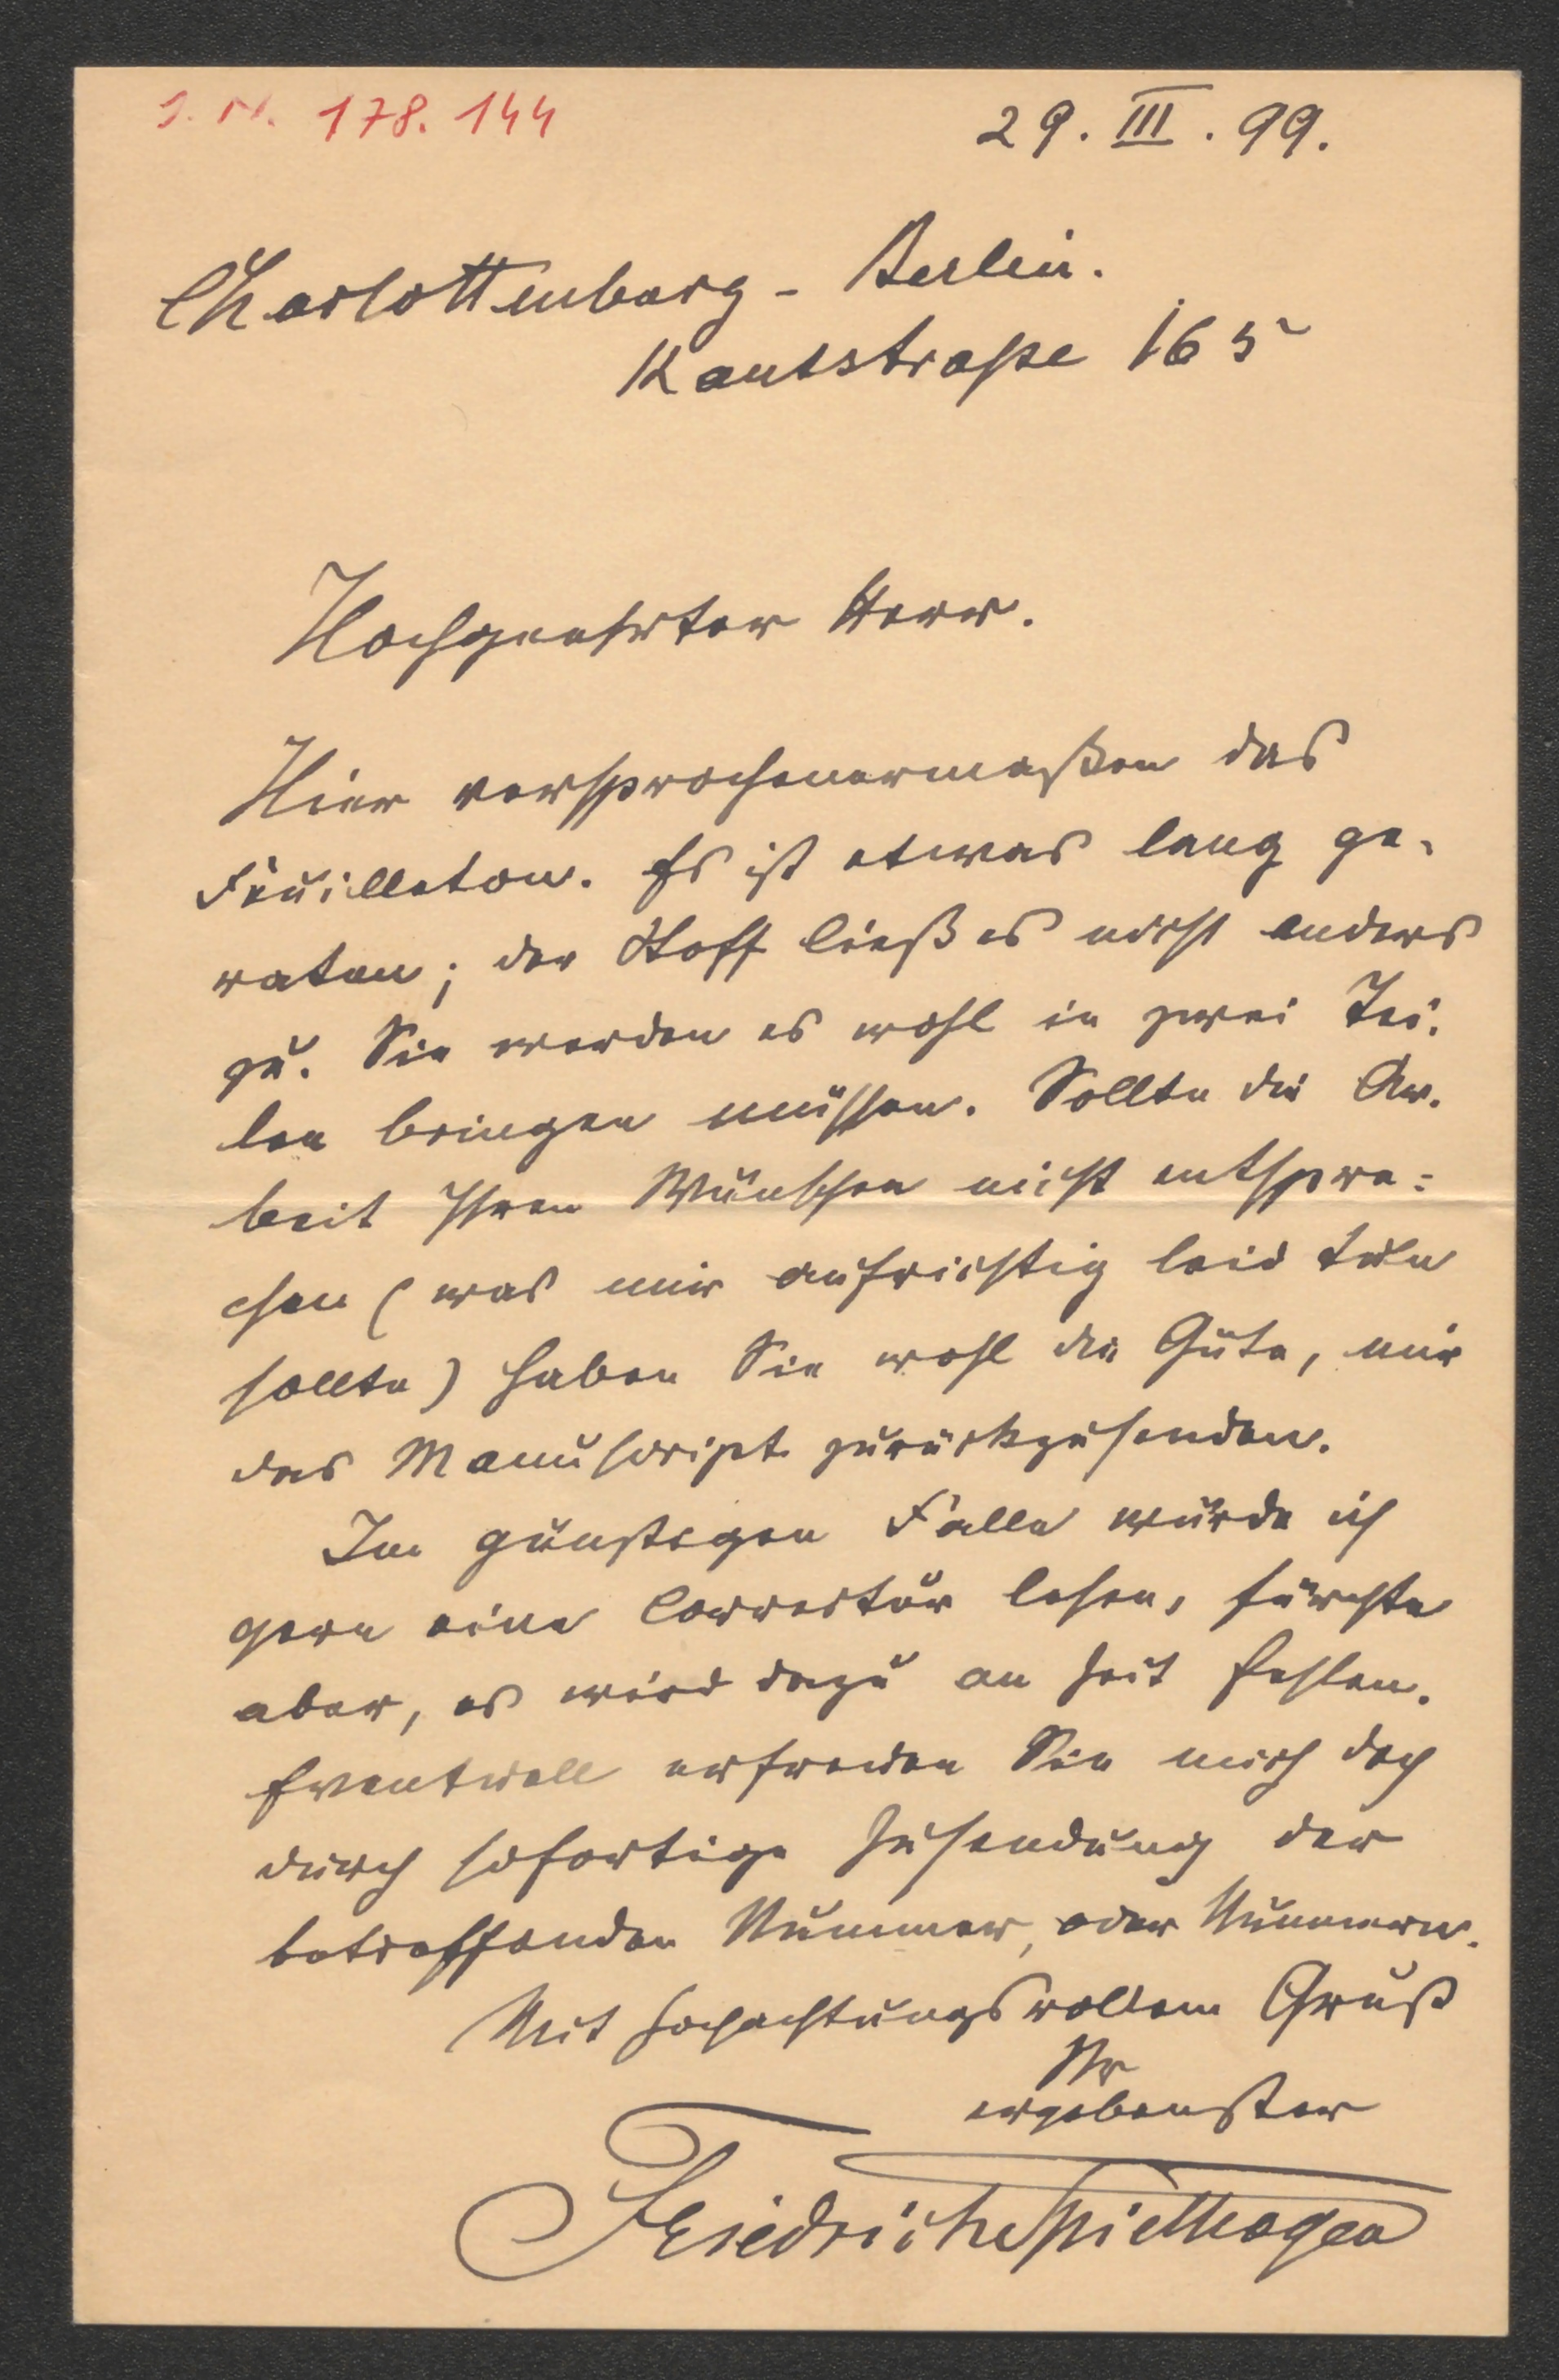 J. N. 178. 144
29. III. 99.
Charlottenburg - Berlin.
Kantstraße 165
Hochgeehrter Herr.
Hier versprochenermaßen das
Feuilleton. Es ist etwas lang ge-
raten; der Stoff ließ es nicht anders
zu. Sie werden es wohl in zwei Tei-
len bringen müssen. Sollte die Ar-
beit Ihren Wünschen nicht entspre-
chen (was mir aufrichtig leid tun
sollte) haben Sie wohl die Güte, mir
das Manuscript zurückzusenden.
Im günstigen Falle würde ich
gern eine Correctur lesen, fürchte
aber, es wird dazu an Zeit fehlen.
Eventuell erfreuen Sie mich doch
durch sofortige Zusendung der
betreffenden Nummer, oder Nummern.
Mit hochachtungsvollem Gruß
Ihr
ergebenster
Friedrich Spielhagen